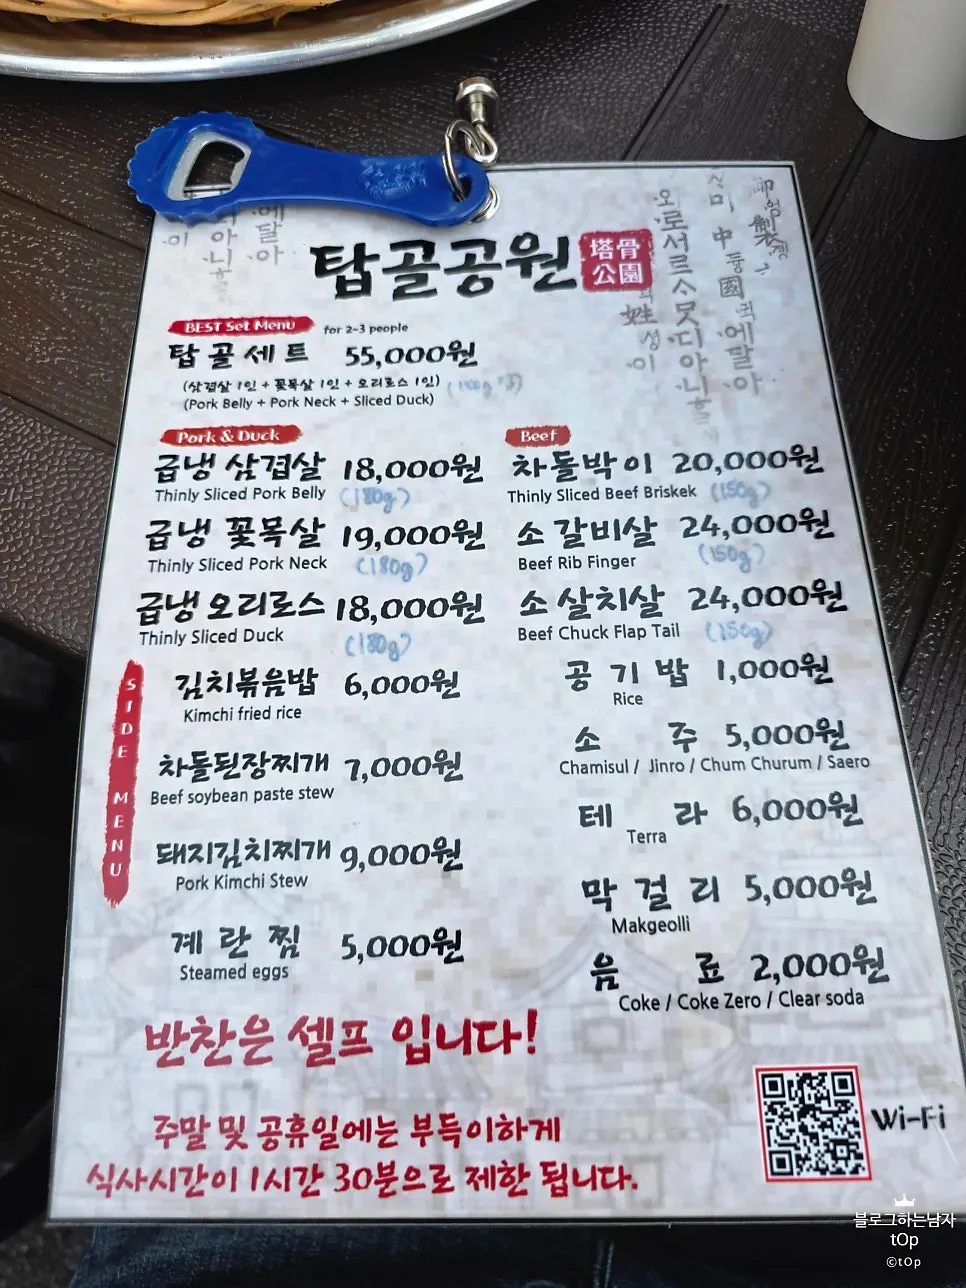 탑골공원 塔骨公園
BEST Set Menu for 2~3 people
탑골세트 55,000원
(삼겹살 1인 + 꽃목살 1인 + 오리로스 1인)
(Pork Belly + Pork Neck + Sliced Duck)
Pork & Duck
급냉 삼겹살 18,000원
Thinly Sliced Pork Belly (180g)
급냉 꽃목살 19,000원
Thinly Sliced Pork Neck (180g)
급냉 오리로스 18,000원
Thinly Sliced Duck (180g)
Beef
차돌박이 20,000원
Thinly Sliced Beef Briskek (150g)
소 갈비살 24,000원
Beef Rib Finger (150g)
소 살치살 24,000원
Beef Chuck Flap Tail (150g)
SIDE MENU
김치볶음밥 6,000원
Kimchi fried rice
차돌된장찌개 7,000원
Beef soybean paste stew
돼지김치찌개 9,000원
Pork Kimchi Stew
계란찜 5,000원
Steamed eggs
공기밥 1,000원
Rice
소주 5,000원
Chamisul / Jinro / Chum Churum / Saero
테라 6,000원
Terra
막걸리 5,000원
Makgeolli
음료 2,000원
Coke / Coke Zero / Clear soda
반찬은 셀프 입니다!
주말 및 공휴일에는 부득이하게
식사시간이 1시간 30분으로 제한 됩니다.
Wi-Fi
블로그하는남자
tOp
©tOp